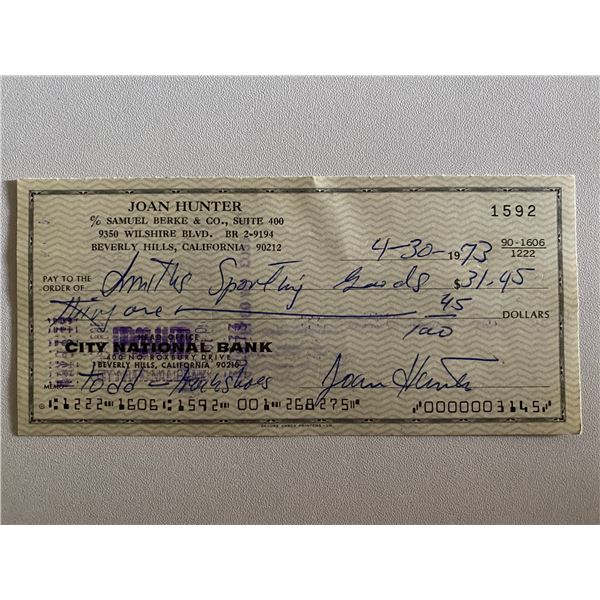 JOAN HUNTER
% SAMUEL BERKE & CO., SUITE 400
9350 WILSHIRE BLVD. BR 2-9194
BEVERLY HILLS, CALIFORNIA 90212
1592
4-30-1973
90-1606
1222
PAY TO THE
ORDER OF Smiths Sporting Goods $31.45
Thirty one 45/100 DOLLARS
HEAD OFFICE
CITY NATIONAL BANK
400 NO. ROXBURY DRIVE
BEVERLY HILLS, CALIFORNIA 90210
MEMO Todd - Joan Hunter
⑆1222⑉1606⑆1592 001⑈268275⑈ ⑈0000003145⑈
SECURE CHECK PRINTERS